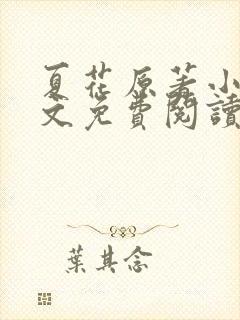 夏花原著小
文免費閱讀
葉其念